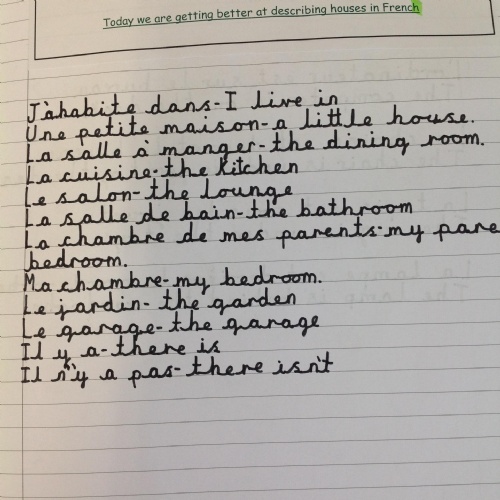 Today we are getting better at describing houses in French
J'àhabite dans-I live in
Une petite maison-a little house.
La salle à manger-the dining room.
La cuisine-the kitchen
Le salon-the lounge
La salle de bain-the bathroom
La chambre de mes parents-my pare
bedroom.
Ma chambre-my bedroom.
Le jardin- the garden
Le garage- the garage
Il y a-there is
Il n'y a pas- there isn't